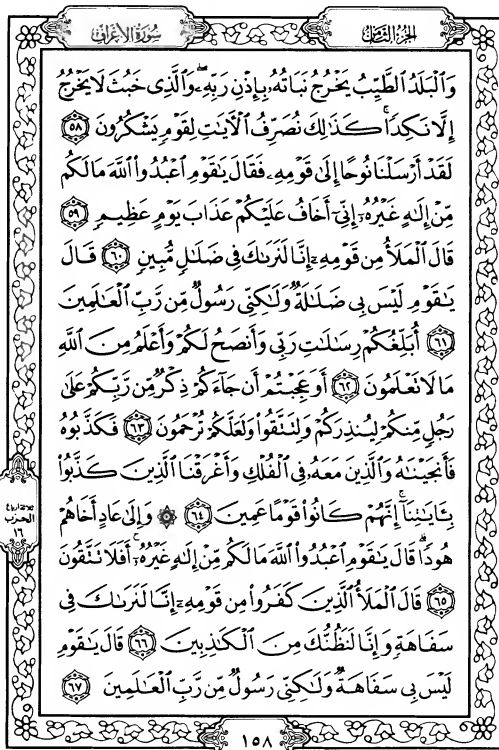 سُورَةُ الأَعْرَافِ
الجُزْءُ الثَّامِنُ
وَٱلْبَلَدُ ٱلطَّيِّبُ يَخْرُجُ نَبَاتُهُۥ بِإِذْنِ رَبِّهِۦۖ وَٱلَّذِى خَبُثَ لَا يَخْرُجُ
إِلَّا نَكِدًاۚ كَذَٰلِكَ نُصَرِّفُ ٱلْأَيَٰتِ لِقَوْمٍ يَشْكُرُونَ ٥٨
لَقَدْ أَرْسَلْنَا نُوحًا إِلَىٰ قَوْمِهِۦ فَقَالَ يَٰقَوْمِ ٱعْبُدُوا۟ ٱللَّهَ مَا لَكُم
مِّنْ إِلَٰهٍ غَيْرُهُۥٓ إِنِّىٓ أَخَافُ عَلَيْكُمْ عَذَابَ يَوْمٍ عَظِيمٍ ٥٩
قَالَ ٱلْمَلَأُ مِن قَوْمِهِۦٓ إِنَّا لَنَرَىٰكَ فِى ضَلَٰلٍ مُّبِينٍ ٦٠ قَالَ
يَٰقَوْمِ لَيْسَ بِى ضَلَٰلَةٌ وَلَٰكِنِّى رَسُولٌ مِّن رَّبِّ ٱلْعَٰلَمِينَ
٦١ أُبَلِّغُكُمْ رِسَٰلَٰتِ رَبِّى وَأَنصَحُ لَكُمْ وَأَعْلَمُ مِنَ ٱللَّهِ
مَا لَا تَعْلَمُونَ ٦٢ أَوَعَجِبْتُمْ أَن جَآءَكُمْ ذِكْرٌ مِّن رَّبِّكُمْ عَلَىٰ
رَجُلٍ مِّنكُمْ لِيُنذِرَكُمْ وَلِتَتَّقُوا۟ وَلَعَلَّكُمْ تُرْحَمُونَ ٦٣ فَكَذَّبُوهُ
فَأَنجَيْنَٰهُ وَٱلَّذِينَ مَعَهُۥ فِى ٱلْفُلْكِ وَأَغْرَقْنَا ٱلَّذِينَ كَذَّبُوا۟
بِـَٔايَٰتِنَآۚ إِنَّهُمْ كَانُوا۟ قَوْمًا عَمِينَ ٦٤ ۞ وَإِلَىٰ عَادٍ أَخَاهُمْ
هُودًاۗ قَالَ يَٰقَوْمِ ٱعْبُدُوا۟ ٱللَّهَ مَا لَكُم مِّنْ إِلَٰهٍ غَيْرُهُۥٓۚ أَفَلَا تَتَّقُونَ
٦٥ قَالَ ٱلْمَلَأُ ٱلَّذِينَ كَفَرُوا۟ مِن قَوْمِهِۦٓ إِنَّا لَنَرَىٰكَ فِى
سَفَاهَةٍ وَإِنَّا لَنَظُنُّكَ مِنَ ٱلْكَٰذِبِينَ ٦٦ قَالَ يَٰقَوْمِ
لَيْسَ بِى سَفَاهَةٌ وَلَٰكِنِّى رَسُولٌ مِّن رَّبِّ ٱلْعَٰلَمِينَ ٦٧
الحزب
١٦
١٥٨